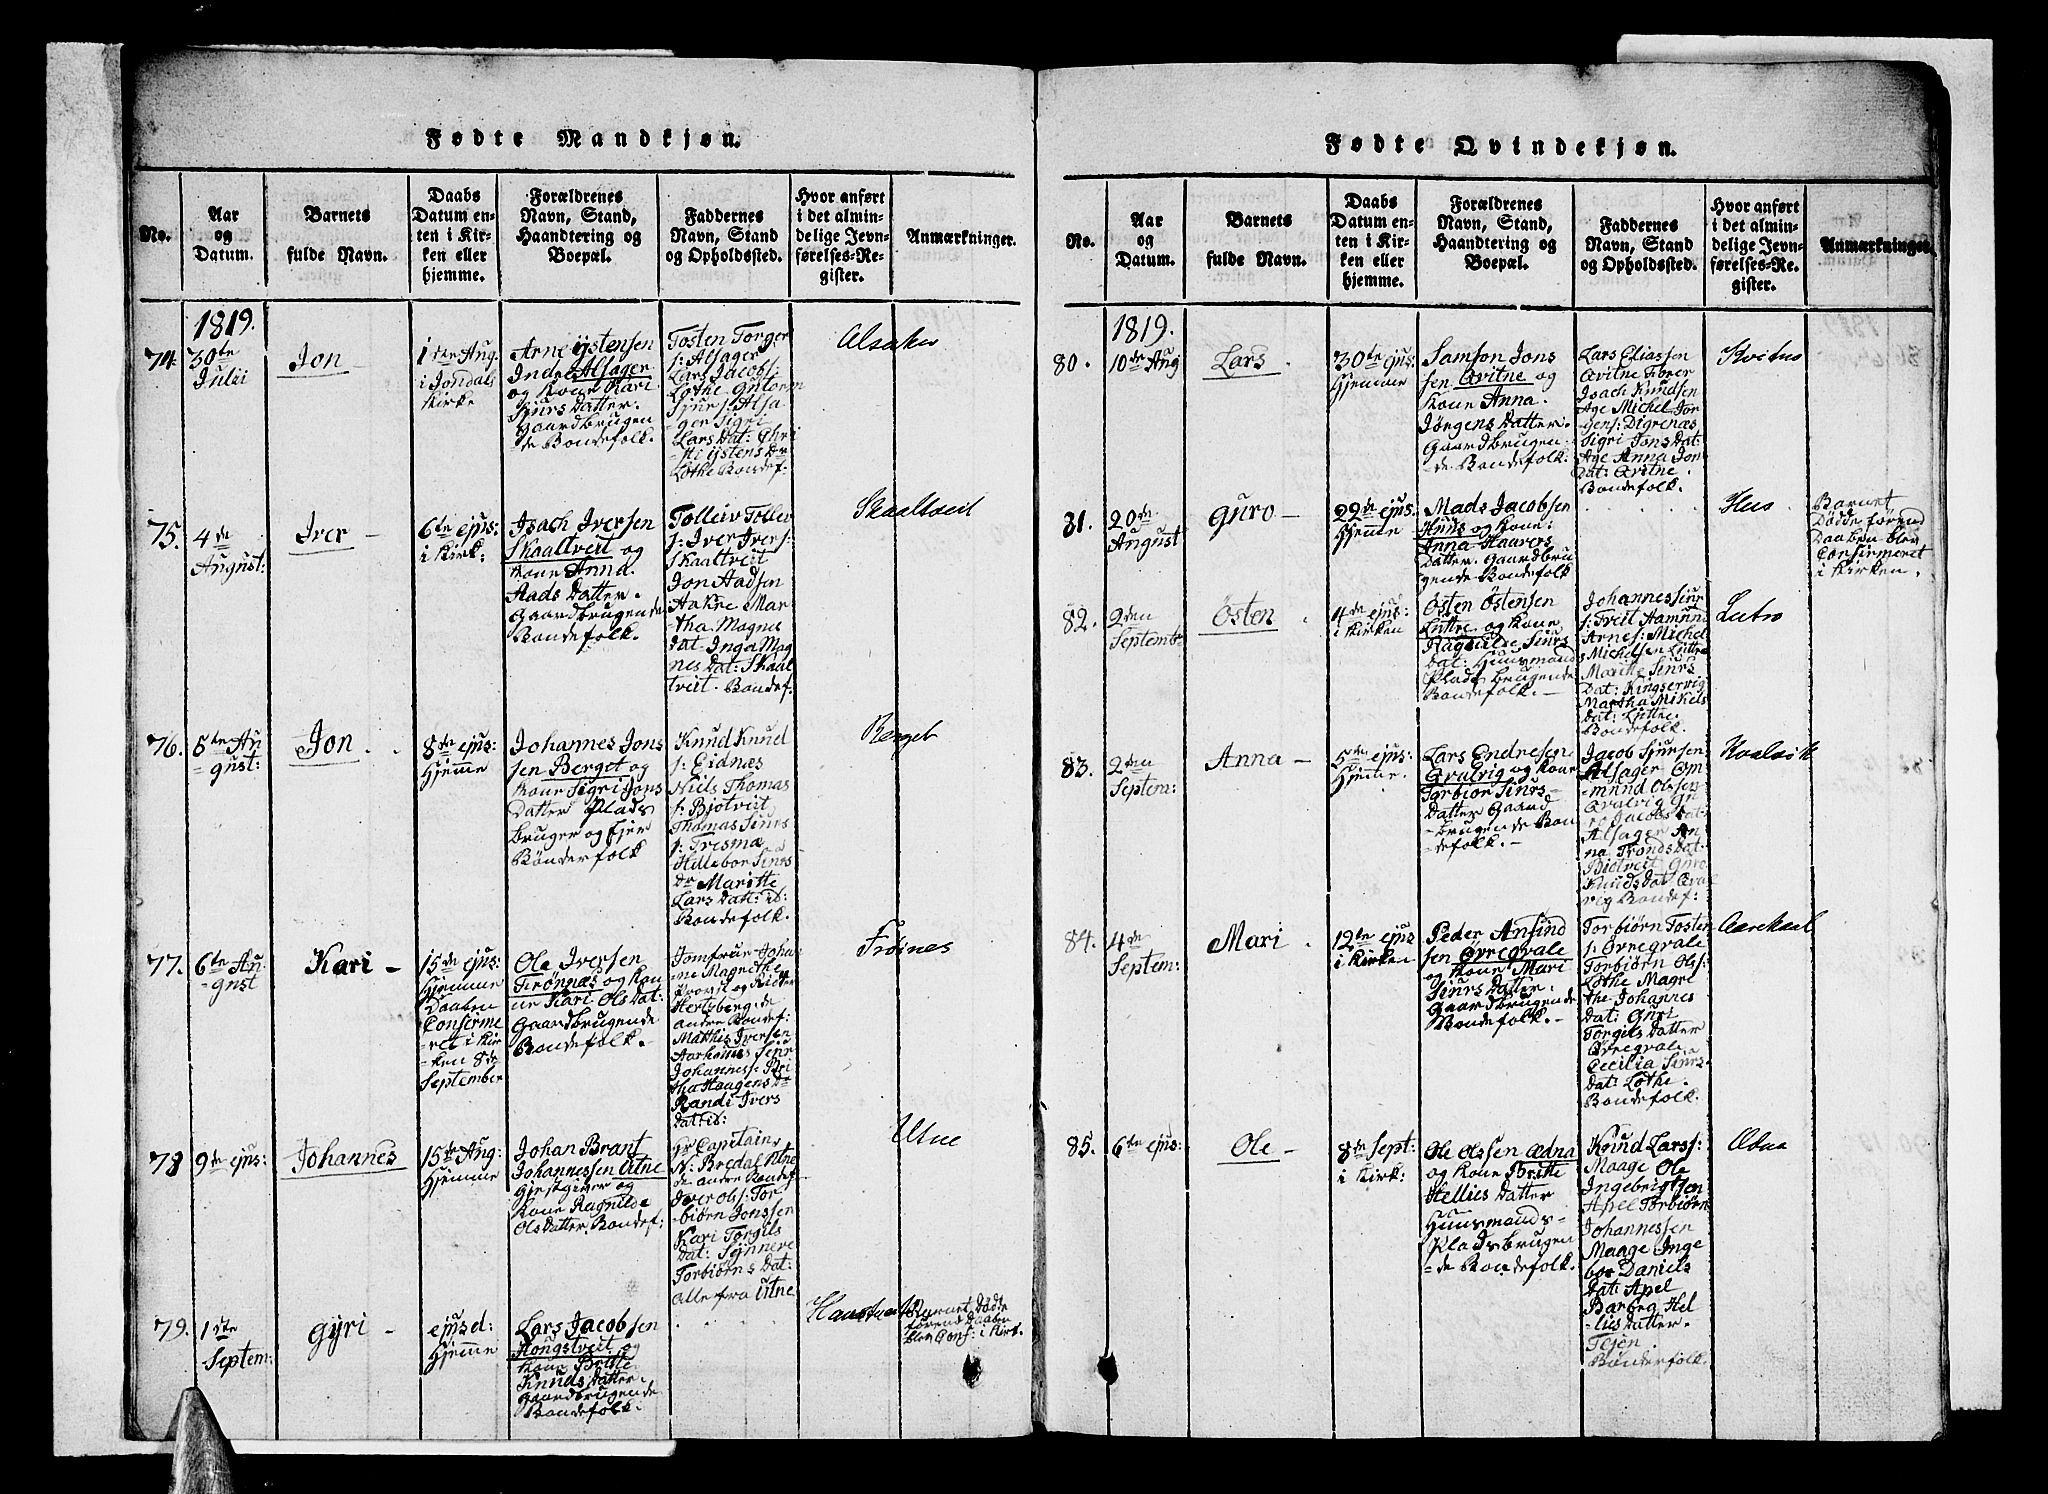 Fødte Mandkjøn.
No.
Aar
og
Datum.
Barnets
fulde Navn.
Daabs
Datum en-
ten i Kir-
ken eller
hjemme.
Forældrenes
Navn, Stand,
Haandtering og
Boepæl.
Faddernes
Navn, Stand
og Opholdssted.
Hvor anført
i det almin-
delige Jevn-
førelses-Re-
gister.
Anmærkninger.
1819.
74.
30te
Julii
Jon
1ste Aug.
i Jondals
Kirke
Arne Ÿstensen
Indre Alsager
og Kone Kari
Sjurs Datter.
Gaardbrugen
de Bondefolk.
Tosten Torger
s: Alsager
Lars Jacobs:
Lothe Gutorm
Sjurs: Alsa
ger Sigri
Lars Dat: Chri
sti Ÿstens Dr
Lothe Bondef.
Alsaker
75.
4de
August:
Iver –
6te ejus:
i Kirk:
Isach Iversen
Skaaltveit og
Kone Anna
Aads Datter.
Gaardbrugende
Bondefolk.
Tolleiv Tolleiv
s: Iver Ivers:
Skaaltveit
Jon Aadsen
Aakre Mar
tha Magne
Dat: Inga Mag
nes Dat: Skaal
tveit. Bondef.
Skaaltveit
76.
5te Au
=gust:
Jon
8de ejus:
Hjemme
Johannes Jons
sen Berget og
Kone Sigri Jons
Datter Plads
bruger og Ejer
Bønderfolk
Knud Knud
s: Eidnæs
Niels Thomas
s: Bjotveit
Thomas Siurs
s: Tresmæ
Hellebor Siurs
Dr Maritte
Lars Dat: ib:
Bondefolk.
Berget
77.
6te Au
=gust
Kari –
15de ejus:
Hjemme
Daaben
Confirme
=ret i Kir
=ken 8de
September
Ole Iversen
Trønnæs og Ko
ne Kari Ols Dat:
Gaardbrugende
Bondefolk.
Jomfrue Johan
ne Magrethe
Provst og Ridder
Hertsberg de
andre Bondef:
Matthis Iversen
Aarhanus Siur
Johanness: Bri
tha Haagens Dr
Randi Ivers
Dat ib:
Trøines
78
9de ejus:
Johannes
15de Aug:
Hjemme
Johan Brant
Johannessen Utne
Gjestgiver og
Kone Ragnilde
Ols Datter Bondef:
Hr Capitain
N: Bredal Utne
de andre Bondef
Iver Ols: Tor
biørn Jonssen
Kari Torgils
Dat: Synnere
Torbiørns Dat:
alle fra Utne
Utne
79.
1ste
Septem:
Gÿri –
ejusd:
Hjemme
Lars Jacobsen
Hougstveit og
Kone Britte
Knuds Datter.
Gaardbrugende
Bondefolk.
Barnet Dødte
førend Daaben
blev Conf: i Kirk.
Fødte Qvindekjøn.
No.
Aar
og
Datum.
Barnets
fulde Navn.
Daabs
Datum en-
ten i Kir-
ken eller
hjemme.
Forældrenes
Navn, Stand,
Haandtering og
Boepæl.
Faddernes
Navn, Stand
og Opholdssted.
Hvor anført
i det almin-
delige Jevn-
førelses-Re-
gister.
Anmærkninger.
1819.
80.
10de Aug
Lars
30te ejus:
Hjemme
Samson Jons
sen Qvitne og
Kone Anna
Jørgens Datter.
Gaardbrugen
de Bondefolk:
Lars Eliassen
Qvitne Torer
Isach Knudsen
Age Michel Jør
gens: Digrenæs
Sigri Jons Dat:
Age Anna Jon
Dat: Qvitne.
Bondefolk.
Kvitno
81.
20de
August
Guro –
29de ejus:
Hjemme
Mads Jacobsen
Huus og Kone:
Anna Haavers
Datter. Gaardbru
gende Bondefolk
Hus
Barnet
Dødde førend
Daaben blev
Confirmeret
i Kirken.
82.
2den
Septembr
Østen
4de ejus:
i Kirken
Østen Østensen
Lutre og Kone
Ragnilde Siurs
Dat: Huusmands
Plads brugende
Bondefolk. –
Johannes Siur
s: Treit Aamun
Arnes: Michel
Michelsen Luttre
Maritte Siurs
Dat: Kingservig
Martha Mikels
Dat: Luttre.
Bondefolk.
Lutro
83.
2den
Septem:
Anna –
5te ejus:
Hjemme.
Lars Endresen
Qvalvig og Kone
Torbior Siurs-
Datter Gaard
=brugende Bon
=defolk. –
Jacob Sjursen
Alsager Om
mund Olssen
Qvalvig Gu
ro Jacobs Dat:
Alsager An
na Tronds Dat:
Biotveit Guro
Knuds Dat Qval
vig Bondef:
Kvalvik
84.
4de
Septem:
Mari
12te ejus
i Kirken
Peder Amund
sen Øvreqvale
og Kone Mari
Siurs Datter.
Gaardbrugende
Bondefolk. –
Torbiørn Tosten
s: Øvreqvale
Torbiørn Ols:
Lothe Magre
the Johannes
Dat: Guri
Torgils Datter
Øvreqvale
Cecilia Siurs
Dat: Lothe.
Bondefolk.
85.
6te ejus:
Ole –
8de Sept:
i Kirk:
Ole Olssen Ædna
og Kone Britte
Hellies Datter
Huusmands-
Pladsbrugen
=de Bondefolk.
Knud Larss:
Maage Ole
Ingebrigtsen
Apel Torbiørn
Johannessen
Maage Inge
bor Daniels
Dat: Apel
Barbra Hel
lies Datter.
Tejen.
Bønderfolk.
Ædna